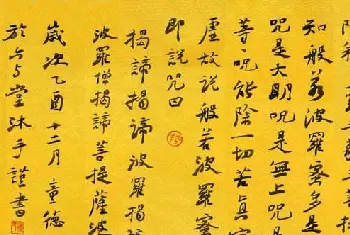 知般若波羅蜜多是
咒是大明咒是無上咒是
等咒能除一切苦真實
虛故說般若波羅蜜
即說咒曰
揭諦揭諦波羅揭
波羅僧揭諦菩提薩婆
歲次乙酉十二月童德
於堂沐手謹書